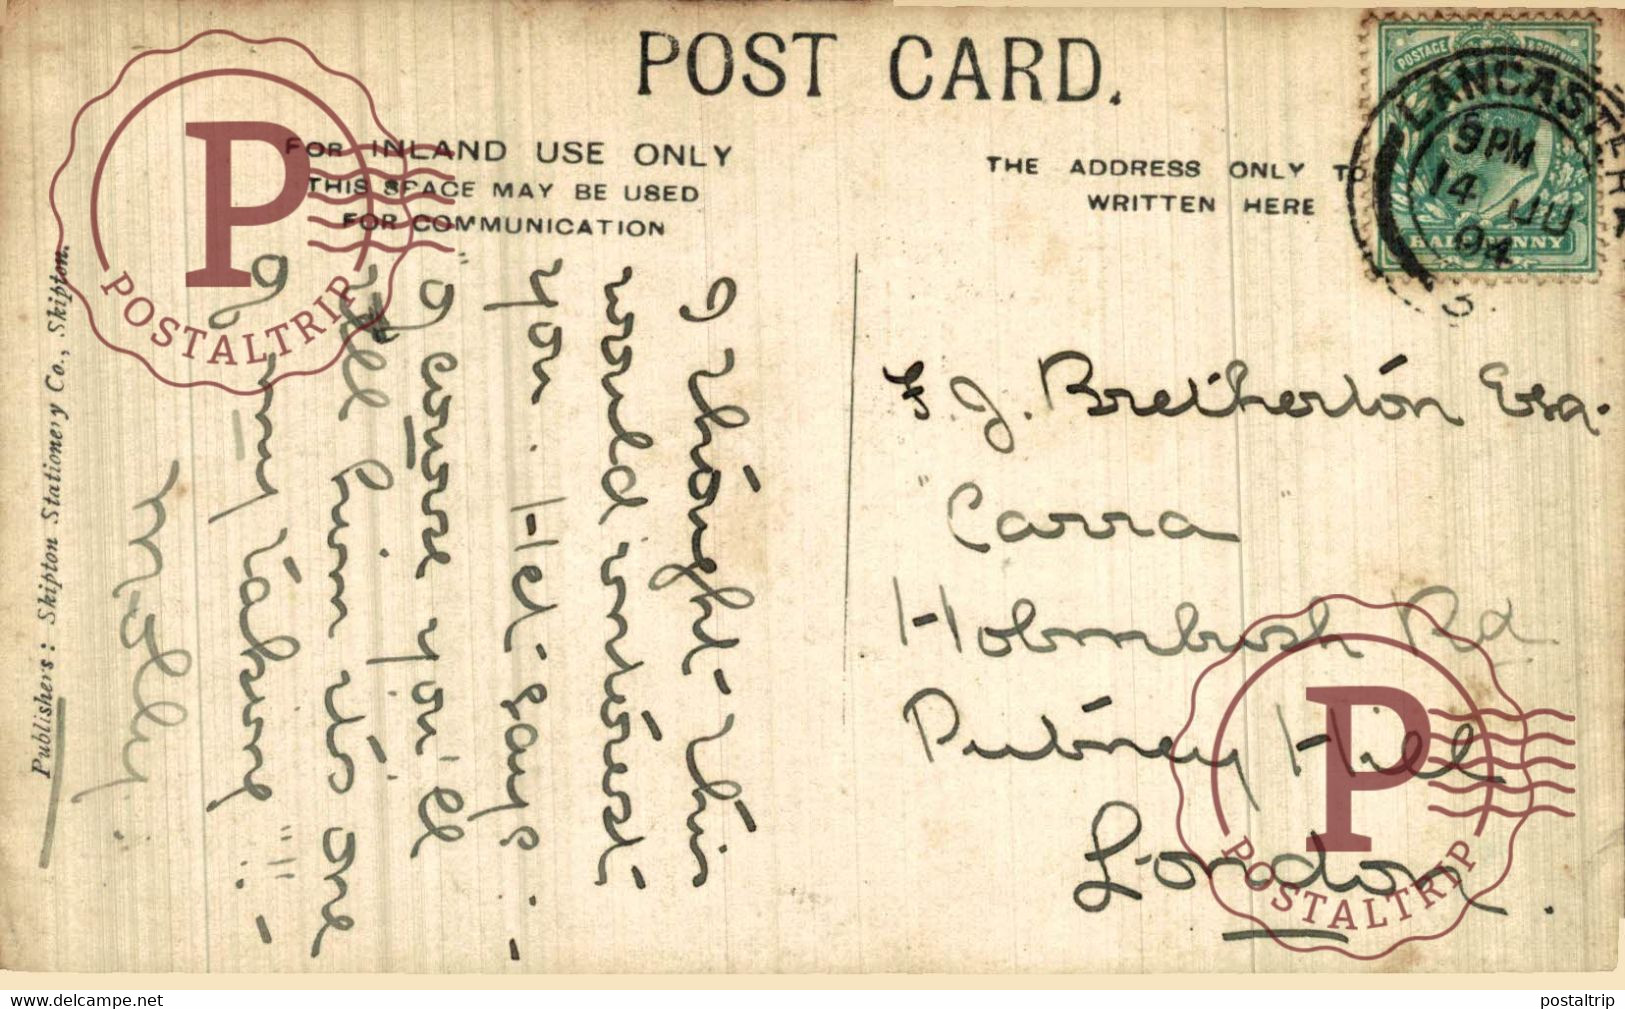 POST CARD.
FOR INLAND USE ONLY
THIS SPACE MAY BE USED
FOR COMMUNICATION
THE ADDRESS ONLY TO
WRITTEN HERE
POSTAGE REVENUE
HALFPENNY
LANCASTER
9 PM
14 JU
04
Publishers: Skipton Stationery Co., Skipton.
I thought this
would interest
you. Het says: -
"I you'll
tell him it's one
o my taking"!! -
Molly.
F. J. Bretherton Esq.
"Carra"
Holmbush Rd
Putney Hill
London.
P
POSTALTRIP
P
POSTALTRIP
www.delcampe.net
postaltrip